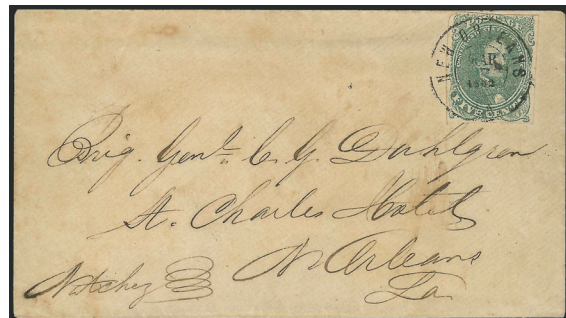 NEW ORLEANS
MAR
1862
FIVE CENTS
Brig. Genl. C. G. Dahlgren
St. Charles Hotel
N Orleans
La
Natchez